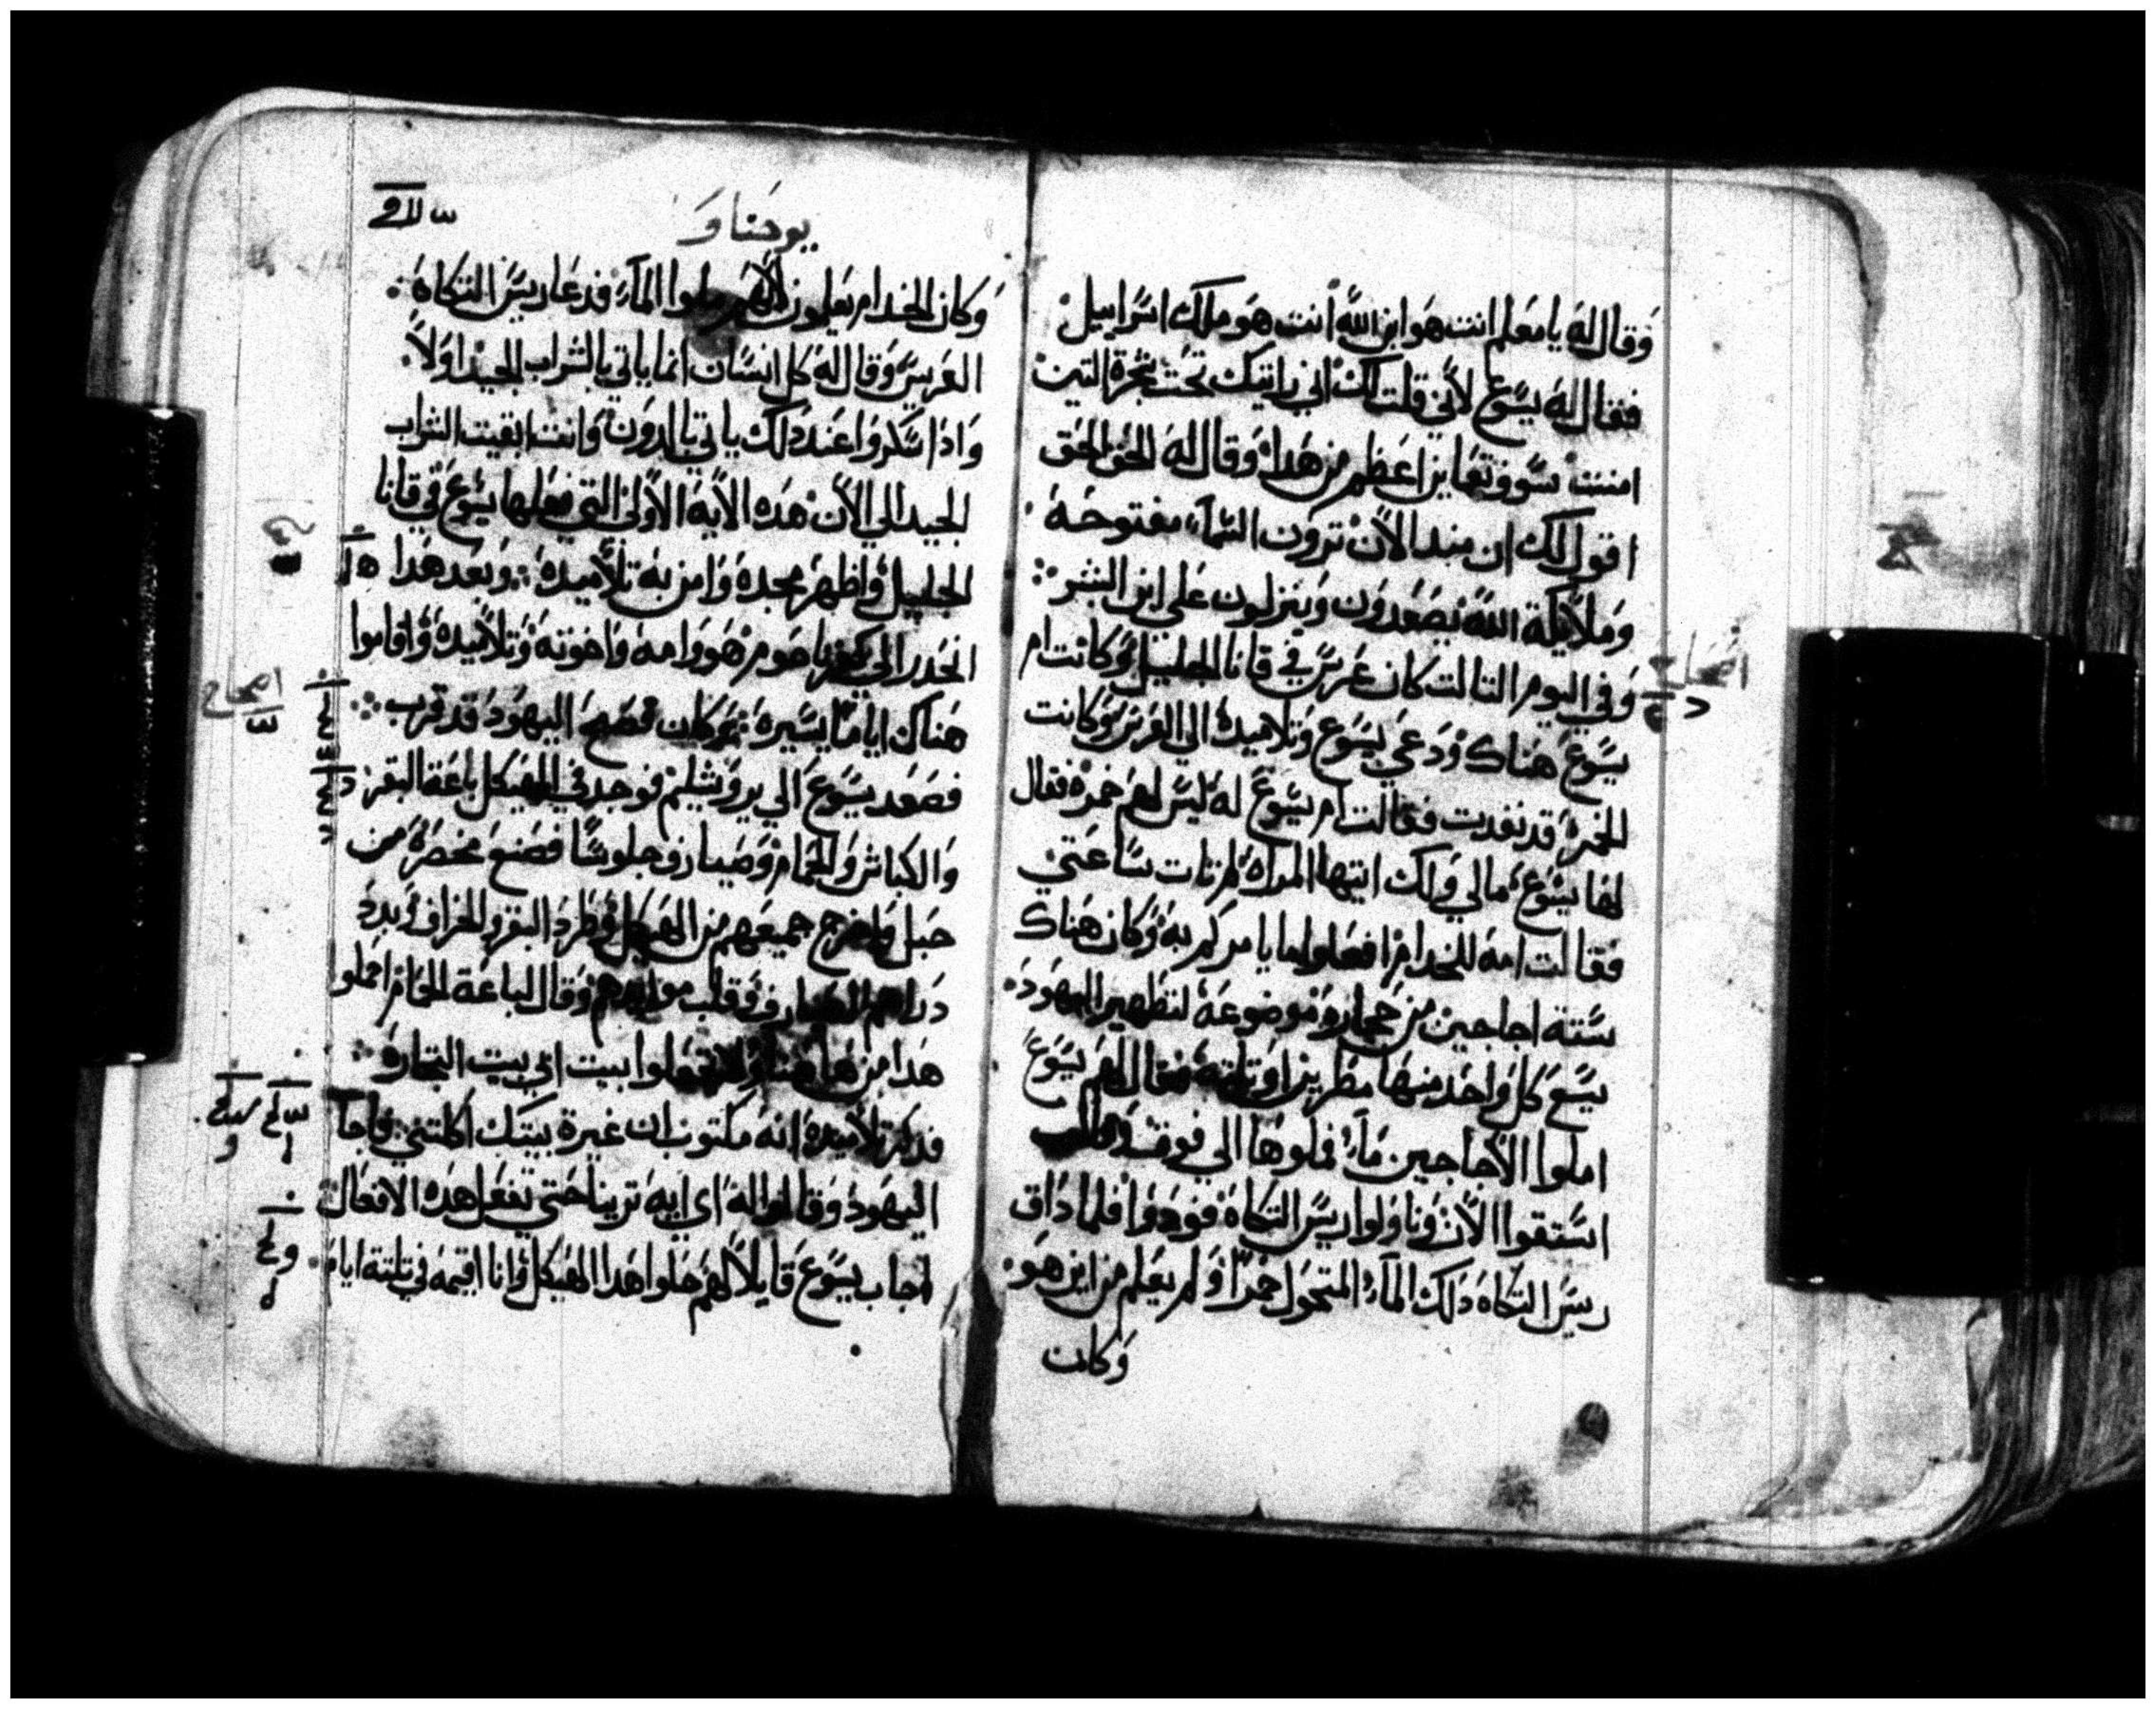 وقال له يا معلم انت هو ابن الله انت هو ملك اسراييل
فقال له يسوع لاني قلت لك اني رايتك تحت شجرة التين
امنت سوف تعاين اعظم من هدا وقال له الحق الحق
اقول لك ان مند الان ترون السماء مفتوحه
وملايكة الله يصعدون وينزلون على ابن البشر
وفي اليوم التالت كان عرس في قانا الجليل وكانت ام
يسوع هناك ودعي يسوع وتلاميده الي العرس وكانت
الخمره قد نفدت فقالت ام يسوع له ليس لهم خمره فقال
لها يسوع مالي ولك ايتها المراه لم تات ساعتي
فقالت امه للخدام افعلوا ما يامركم به وكان هناك
ستة اجاجين من حجاره موضوعه لتطهير اليهود
يسع كل واحد منها مطرين او تلته فقال لهم يسوع
املوا الاجاجين ماء فملوها الي فوق
استقوا الان وناولوا ريس التكاه فودوا فلما داق
ريس التكاه دلك الماء المتحول خمرا ولم يعلم من اين هو
وكان
يوحنا و
وكان الخدام يعلمون لانهم ملوا الماء فدعا ريس التكاه
العريس وقال له كل انسان انما ياتي بالشراب الجيد اولا
وادا سكروا عند دلك ياتي بالدون وانت ابقيت الشراب
الجيد الي الان هده الايه الاولي التي فعلها يسوع في قانا
الجليل واظهر مجده وامن به تلاميده وبعد هدا
انحدر الي كفرناحوم هو وامه واخوته وتلاميده واقاموا
هناك اياما يسيره وكان فصح اليهود قد قرب
فصعد يسوع الي يروشليم فوجد في الهيكل باعة البقر
والكباش والحمام وصيارف جلوسا فصنع مخصرة من
حبل واخرج جميعهم من الهيكل وطرد البقر والخراف وبدد
دراهم الصيارف وقلب موايدهم وقال لباعة الحمام احملو
هدا من هاهنا ولا تجعلوا بيت ابي بيت التجاره
فدكر تلاميده انه مكتوب ان غيرة بيتك اكلتني فاجاب
اليهود وقالوا له اي ايه ترينا حتي تفعل هده الافعال
اجاب يسوع قايلا لهم حلوا هدا الهيكل وانا اقيمه في تلتة ايام
اصحاح
اصحاح